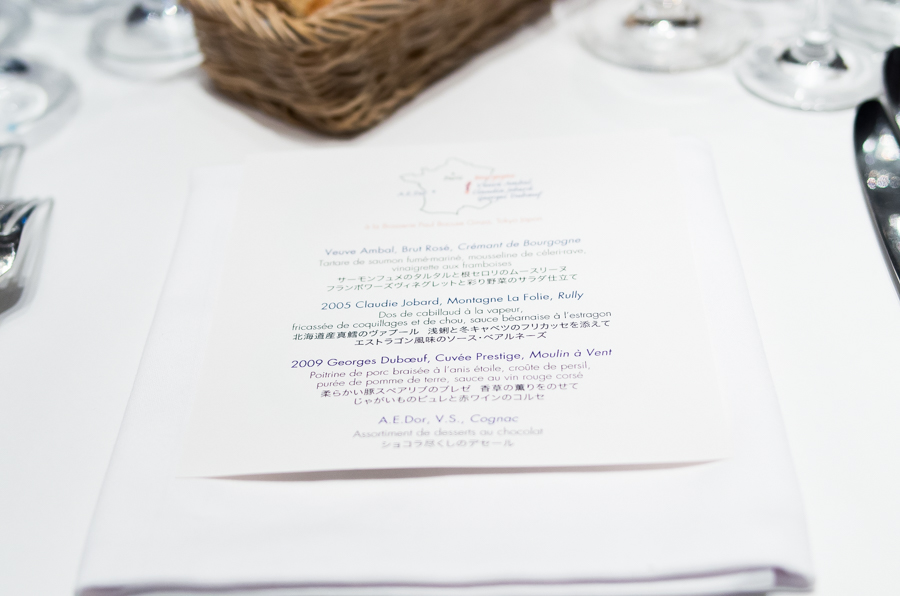 Paris
Veuve Ambal, Brut Rosé, Crémant de Bourgogne
Tartare de saumon fumé-mariné, mousseline de céleri-rave,
vinaigrette aux framboises
サーモンフュメのタルタルと根セロリのムースリーヌ
フランボワーズヴィネグレットと彩り野菜のサラダ仕立て
2005 Claudie Jobard, Montagne La Folie, Rully
Dos de cabillaud à la vapeur,
fricassée de coquillages et de chou, sauce béarnaise à l'estragon
北海道産真鱈のヴァプール 浅蜊と冬キャベツのフリカッセを添えて
エストラゴン風味のソース・ベアルネーズ
2009 Georges Dubœuf, Cuvée Prestige, Moulin à Vent
Poitrine de porc braisée à l'anis étoile, croûte de persil,
purée de pomme de terre, sauce au vin rouge corsé
柔らかい豚スペアリブのブレゼ 香草の薫りをのせて
じゃがいものピュレと赤ワインのコルセ
A.E.Dor, V.S., Cognac
Assortiment de desserts au chocolat
ショコラ尽くしのデセール